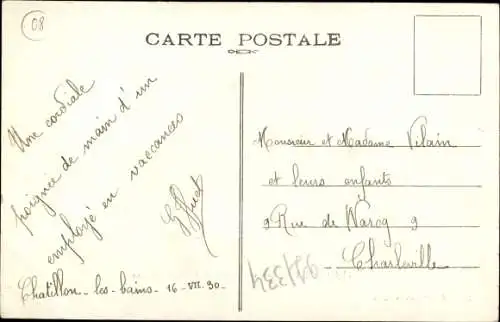 08
CARTE POSTALE
Une cordiale
poignée de main d'un
employé en vaccances
G Huet
Chatillon-les-bains-16-VII.30-
Monsieur et Madame Vilain
et leurs enfants
9 Rue de Warcq 9
Charleville